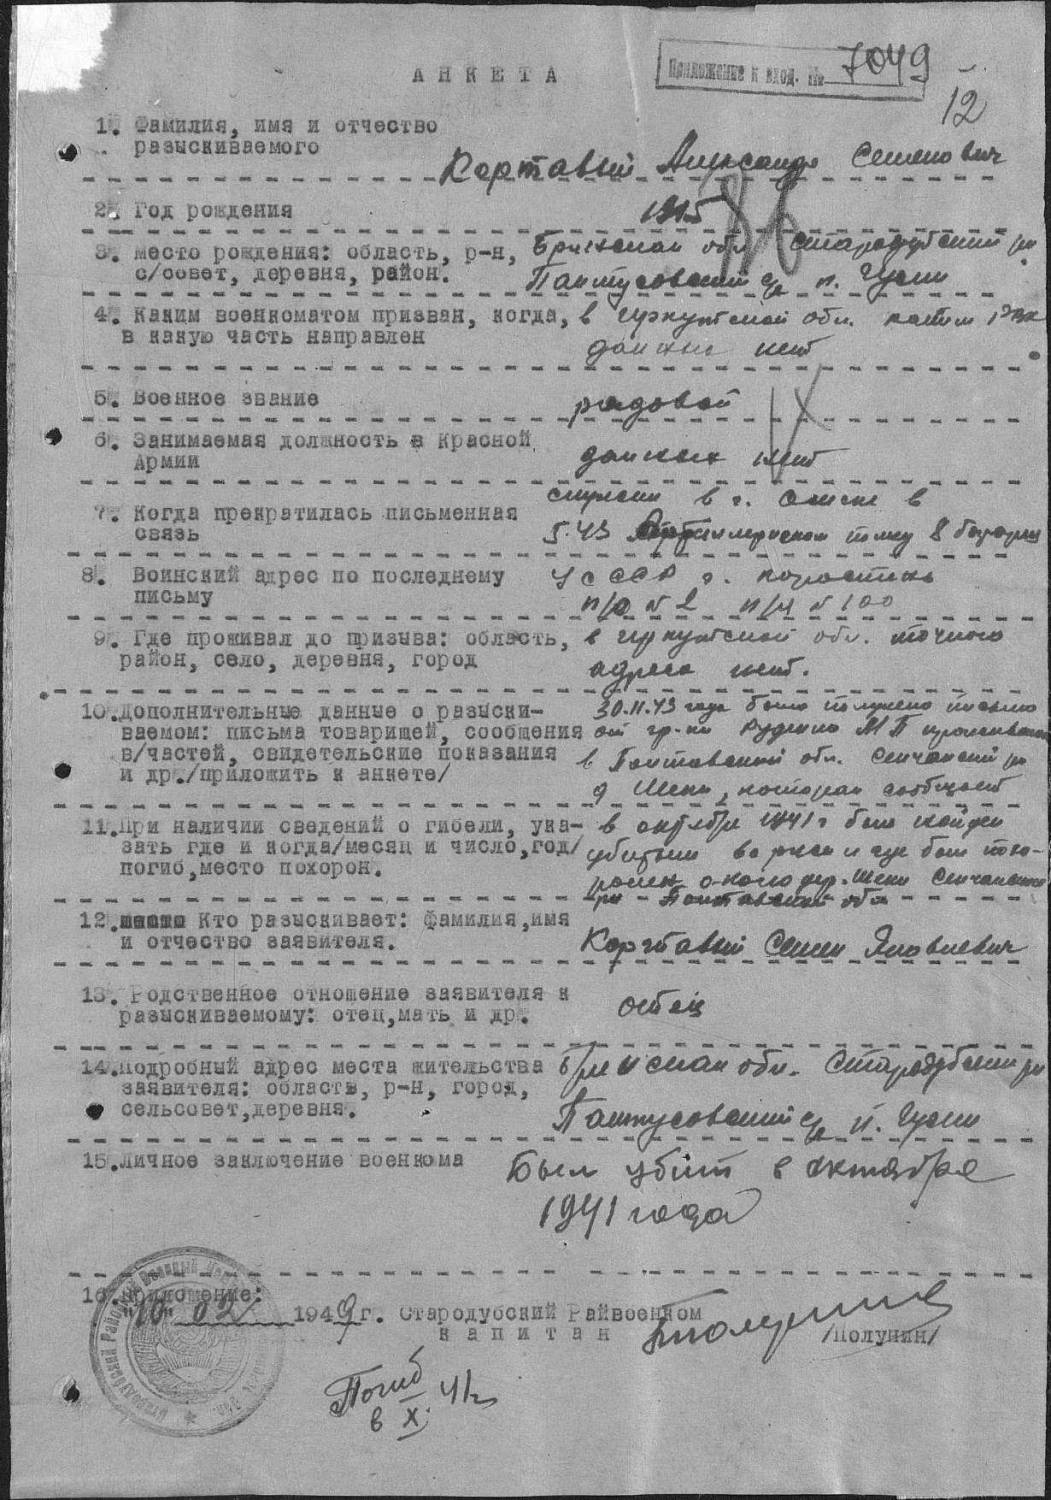 Приложение к вход. № 7049
АНКЕТА
12
1. Фамилия, имя и отчество
разыскиваемого
Кортавый Александр Семенович
2. Год рождения
1915
3. Место рождения: область, р-н, Брянская обл. Стародубский рн
с/совет, деревня, район. Пантусовский с/с п. Гусли
4. Каким военкоматом призван, когда, в Иркутской обл. каким РВК
в какую часть направлен данных нет
5. Военное звание рядовой
6. Занимаемая должность в Красной
Армии данных нет
служил в г. Омске в
7. Когда прекратилась письменная
связь 5.43 Артиллерийском полку 8 батарея
8. Воинский адрес по последнему УССР г. Коростень
письму п/о № 2 п/я № 100
9. Где проживал до призыва: область, в Иркутской обл. точного
район, село, деревня, город адреса нет.
10. Дополнительные данные о разыски- 30.11.43 года было получено письмо
ваемом: письма товарищей, сообщения от гр-ки Руденко М П
в/частей, свидетельские показания в Полтавской обл. Сенчанский рн
и др./приложить к анкете/ д Шеки, которая сообщает
11. При наличии сведений о гибели, ука- в октябре 1941 г был найден
зать где и когда/месяц и число, год/ убитым во ржи и где был похо-
погиб, место похорон. ронен около дер. Шеки Сенчанского
рн Полтавской обл
12. Кто разыскивает: фамилия, имя
и отчество заявителя. Кортавый Семен Яковлевич
13. Родственное отношение заявителя к
разыскиваемому: отец, мать и др. отец
14. Подробный адрес места жительства Брянская обл. Стародубский рн
заявителя: область, р-н, город,
сельсовет, деревня. Пантусовский с/с п. Гусли
15. Личное заключение военкома Был убит в октябре
1941 года
16. Приложение:
"10" 02 1949 г. Стародубский Райвоенком
капитан /Полунин/
Погиб
в X. 41 г.